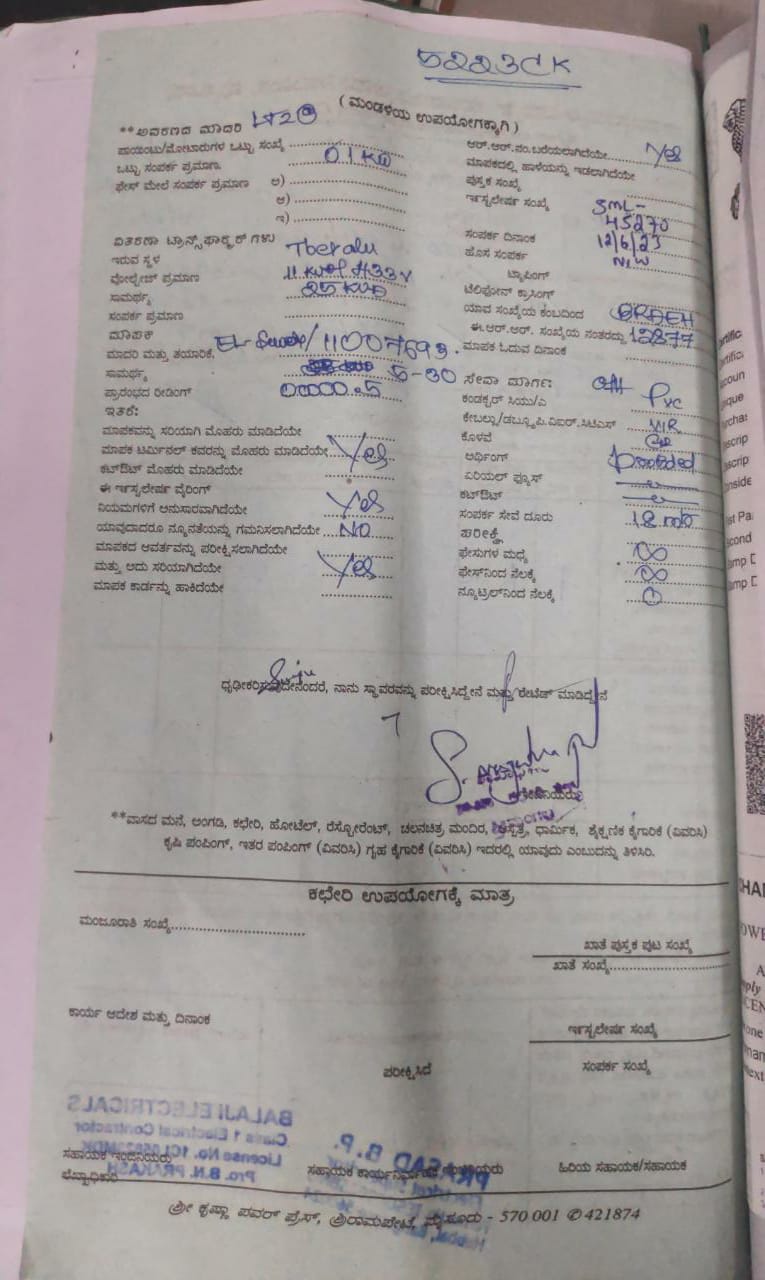 5223CK
( ಮಂಡಳಿಯ ಉಪಯೋಗಕ್ಕಾಗಿ )
**ಆವರಣದ ಮಾದರಿ LT2
ಪಾಯಿಂಟು/ಮೋಟಾರುಗಳ ಒಟ್ಟು ಸಂಖ್ಯೆ
ಒಟ್ಟು ಸಂಪರ್ಕ ಪ್ರಮಾಣ 0.1 KW
ಫೇಸ್ ಮೇಲೆ ಸಂಪರ್ಕ ಪ್ರಮಾಣ ಅ)
ಆ)
ಇ)
ವಿತರಣಾ ಟ್ರಾನ್ಸ್‌ಫಾರ್ಮರ್‌ಗಳು
ಇರುವ ಸ್ಥಳ Tberalu
ವೋಲ್ಟೇಜ್ ಪ್ರಮಾಣ
ಸಾಮರ್ಥ್ಯ 25 KVA
ಸಂಪರ್ಕ ಪ್ರಮಾಣ
ಮಾಪಕ
ಮಾದರಿ ಮತ್ತು ತಯಾರಿಕೆ 11007693
ಸಾಮರ್ಥ್ಯ 5-30
ಪ್ರಾರಂಭದ ರೀಡಿಂಗ್ 00000.5
ಇತರೆ:
ಮಾಪಕವನ್ನು ಸರಿಯಾಗಿ ಮೊಹರು ಮಾಡಿದೆಯೇ
ಮಾಪಕ ಟರ್ಮಿನಲ್ ಕವರನ್ನು ಮೊಹರು ಮಾಡಿದೆಯೇ Yes
ಕಟ್‌ಔಟ್ ಮೊಹರು ಮಾಡಿದೆಯೇ
ಈ ಇನ್ಸ್ಟಲೇಷನ್ ವೈರಿಂಗ್
ನಿಯಮಗಳಿಗೆ ಅನುಸಾರವಾಗಿದೆಯೇ Yes
ಯಾವುದಾದರೂ ನ್ಯೂನತೆಯನ್ನು ಗಮನಿಸಲಾಗಿದೆಯೇ NO
ಮಾಪಕದ ಆವರ್ತವನ್ನು ಪರೀಕ್ಷಿಸಲಾಗಿದೆಯೇ
ಮತ್ತು ಅದು ಸರಿಯಾಗಿದೆಯೇ Yes
ಮಾಪಕ ಕಾರ್ಡನ್ನು ಹಾಕಿದೆಯೇ
ಆರ್.ಆರ್.ನಂ.ಬರೆಯಲಾಗಿದೆಯೇ Yes
ಮಾಪಕದಲ್ಲಿ ಹಾಳೆಯನ್ನು ಇಡಲಾಗಿದೆಯೇ
ಪುಸ್ತಕ ಸಂಖ್ಯೆ
ಇನ್ಸ್ಟಲೇಷನ್ ಸಂಖ್ಯೆ SML-
45270
ಸಂಪರ್ಕ ದಿನಾಂಕ 12/6/23
ಹೊಸ ಸಂಪರ್ಕ New
ಟ್ಯಾಪಿಂಗ್
ಟೆಲಿಫೋನ್ ಕ್ರಾಸಿಂಗ್
ಯಾವ ಸಂಖ್ಯೆಯ ಕಂಬದಿಂದ
ಈ.ಆರ್.ಆರ್. ಸಂಖ್ಯೆಯ ನಂತರದ್ದು 12877
ಮಾಪಕ ಓದುವ ದಿನಾಂಕ
ಸೇವಾ ಮಾರ್ಗ: OH
ಕಂಡಕ್ಟರ್ ಸಿಯು/ಎ PVC
ಕೇಬಲ್ಲು/ಡಬ್ಲ್ಯೂ.ಪಿ.ವಿಐಆರ್.ಸಿಟಿಎಸ್ VIR
ಕೊಳವೆ
ಅರ್ಥಿಂಗ್ provided
ಏರಿಯಲ್ ಫ್ಯೂಸ್
ಕಟ್‌ಔಟ್
ಸಂಪರ್ಕ ಸೇವೆ ದೂರು 18 mtr
ಪರೀಕ್ಷೆ
ಫೇಸುಗಳ ಮಧ್ಯೆ ∞
ಫೇಸ್‌ನಿಂದ ನೆಲಕ್ಕೆ ∞
ನ್ಯೂಟ್ರಲ್‌ನಿಂದ ನೆಲಕ್ಕೆ 0
ಧೃಢೀಕರಿಸುವುದೇನೆಂದರೆ, ನಾನು ಸ್ಥಾವರವನ್ನು ಪರೀಕ್ಷಿಸಿದ್ದೇನೆ ಮತ್ತು ರೇಟೆಡ್ ಮಾಡಿದ್ದೇನೆ
**ವಾಸದ ಮನೆ, ಅಂಗಡಿ, ಕಛೇರಿ, ಹೋಟೆಲ್, ರೆಸ್ಟೋರೆಂಟ್, ಚಲನಚಿತ್ರ ಮಂದಿರ, ಆಸ್ಪತ್ರೆ, ಧಾರ್ಮಿಕ, ಶೈಕ್ಷಣಿಕ ಕೈಗಾರಿಕೆ (ವಿವರಿಸಿ)
ಕೃಷಿ ಪಂಪಿಂಗ್, ಇತರ ಪಂಪಿಂಗ್ (ವಿವರಿಸಿ) ಗೃಹ ಕೈಗಾರಿಕೆ (ವಿವರಿಸಿ) ಇದರಲ್ಲಿ ಯಾವುದು ಎಂಬುದನ್ನು ತಿಳಿಸಿರಿ.
ಕಛೇರಿ ಉಪಯೋಗಕ್ಕೆ ಮಾತ್ರ
ಮಂಜೂರಾತಿ ಸಂಖ್ಯೆ
ಖಾತೆ ಪುಸ್ತಕ ಪುಟ ಸಂಖ್ಯೆ
ಖಾತೆ ಸಂಖ್ಯೆ
ಕಾರ್ಯ ಆದೇಶ ಮತ್ತು ದಿನಾಂಕ
ಇನ್ಸ್ಟಲೇಷನ್ ಸಂಖ್ಯೆ
ಪರೀಕ್ಷಿಸಿದೆ
ಸಂಪರ್ಕ ಸಂಖ್ಯೆ
BALAJI ELECTRICALS
Class 1 Electrical Contractor
Pro. B.N. PRAKASH
PRASAD B.P.
ಸಹಾಯಕ ಇಂಜಿನಿಯರು
ಹಿರಿಯ ಸಹಾಯಕ/ಸಹಾಯಕ
ಶ್ರೀ ಕೃಷ್ಣಾ ಪವರ್ ಪ್ರೆಸ್, ಶ್ರೀರಾಮಪೇಟೆ, ಮೈಸೂರು - 570 001 ✆ 421874